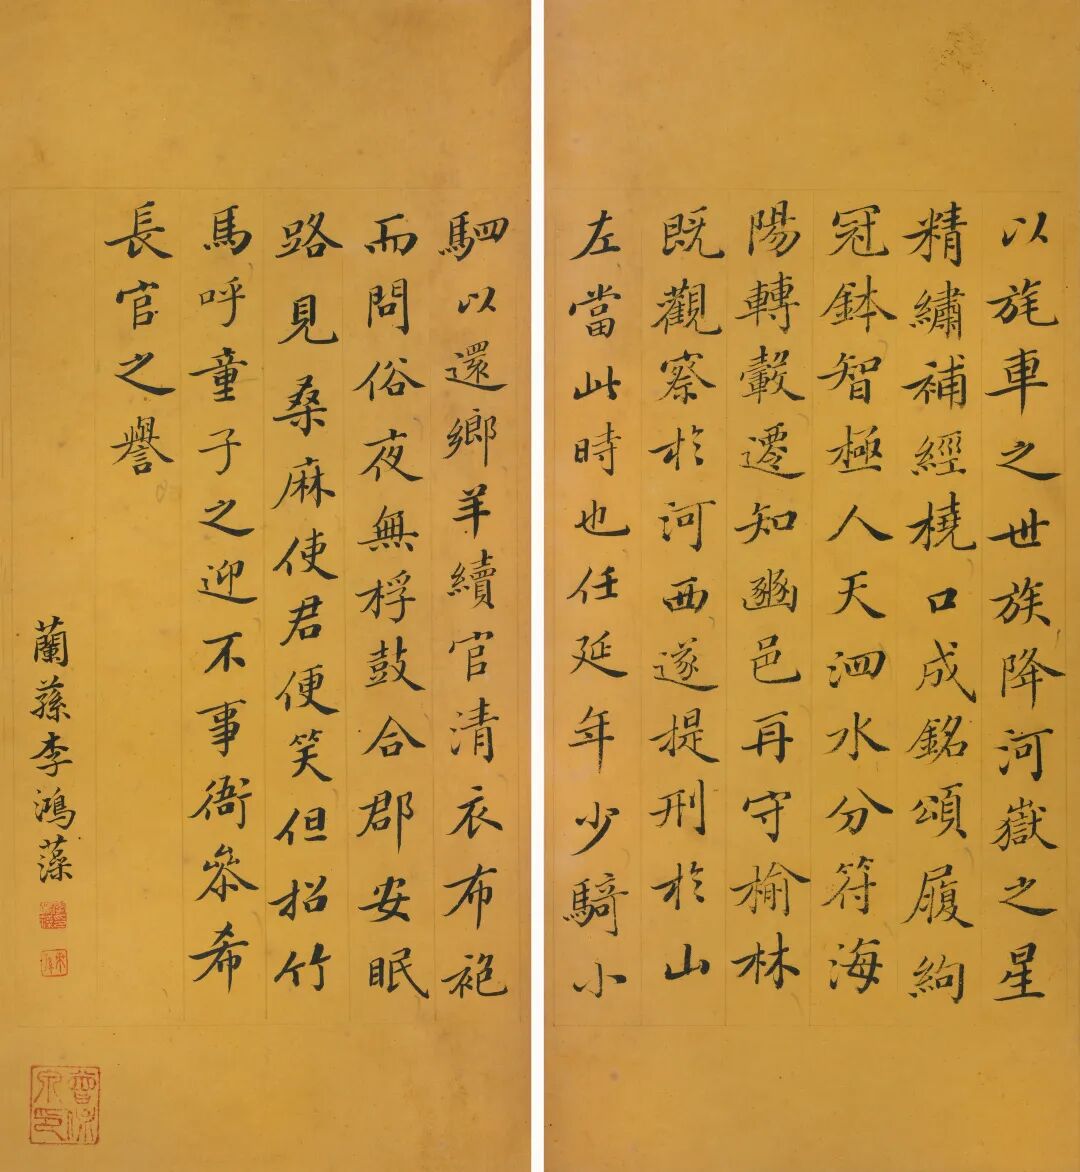 以旄車之世族降河嶽之星
精繡補經橈口成銘頌履絇
冠鉢智極人天泗水分符海
陽轉轂遷知豳邑再守榆林
既觀察於河西遂提刑於山
左當此時也任延年少騎小
駟以還鄉羊續官清衣布袍
而問俗夜無桴鼓合郡安眠
路見桑麻使君便笑但招竹
馬呼童子之迎不事衙參希
長官之譽
蘭蓀李鴻藻